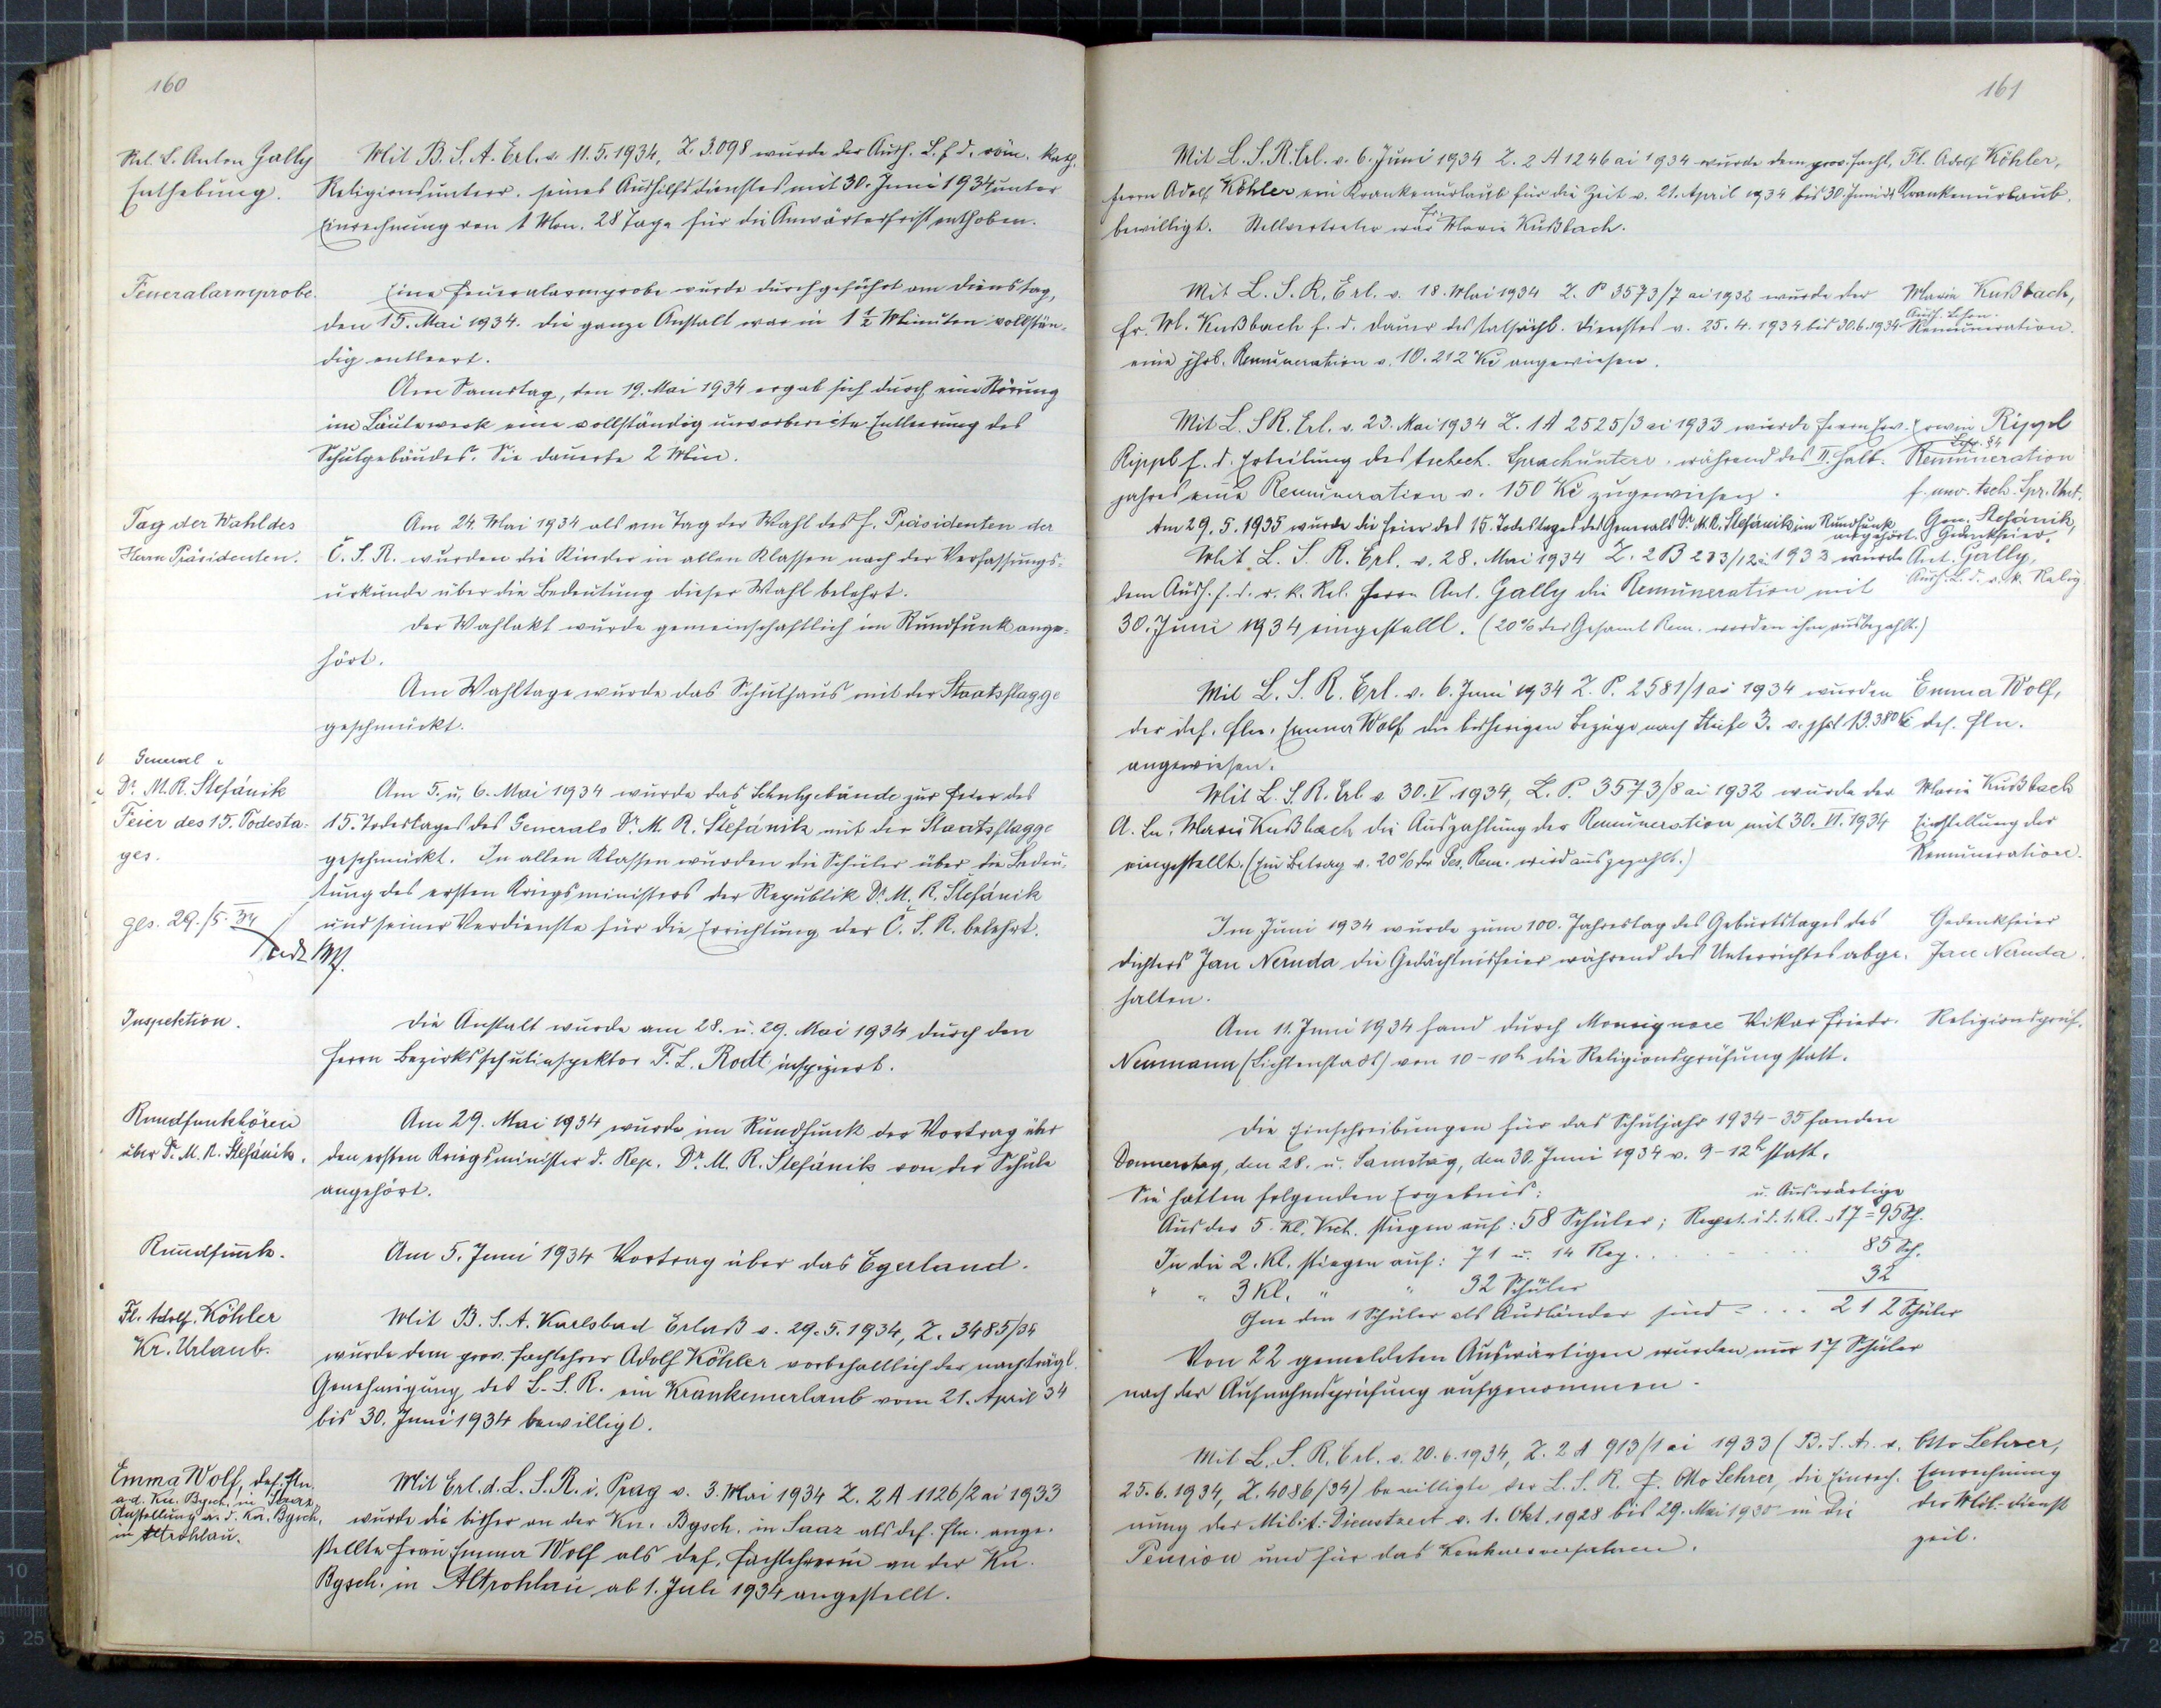 160
Rel. L. Anton Gally
Enthebung.
Mit B. S. A. Erl. v. 11.5.1934, Z. 3.098 wurde der Aush. L. f. d. röm. kath.
Religionsunterr. seines Aushilfsdienstes mit 30. Juni 1934 unter
Einrechnung von 1 Mon. 28 Tage für die Anwärterfrist enthoben.
Feueralarmprobe.
Eine Feueralarmprobe wurde durchgeführt am Dienstag,
den 15. Mai 1934. Die ganze Anstalt war in 1 1/2 Minuten vollstän-
dig entleert.
Am Samstag, den 19. Mai 1934 ergab sich durch eine Störung
im Läutewerk eine vollständig unvorbereitete Entleerung des
Schulgebäudes. Sie dauerte 2 Min.
Tag der Wahl des
Herrn Präsidenten.
Am 24. Mai 1934 als am Tag der Wahl des H. Präsidenten der
Č. S. R. wurden die Kinder in allen Klassen nach der Verfassungs-
urkunde über die Bedeutung dieser Wahl belehrt.
Der Wahlakt wurde gemeinschaftlich im Rundfunk ange-
hört.
Am Wahltage wurde das Schulhaus mit der Staatsflagge
geschmückt.
General
Dr. M. R. Štefánik
Feier des 15. Todesta-
ges.
Am 5. u. 6. Mai 1934 wurde das Schulgebäude zur Feier des
15. Todestages des Generals Dr. M. R. Štefánik mit der Staatsflagge
geschmückt. In allen Klassen wurden die Schüler über die Bedeu-
tung des ersten Kriegsministers der Republik Dr. M. R. Štefánik
und seiner Verdienste für die Errichtung der Č. S. R. belehrt.
ges. 29./5. 34
Rodt
Inspektion.
Die Anstalt wurde am 28. u. 29. Mai 1934 durch den
Herrn Bezirksschulinspektor F. L. Rodt inspiziert.
Rundfunkhören
über Dr. M. R. Štefánik.
Am 29. Mai 1934 wurde im Rundfunk der Vortrag über
den ersten Kriegsminister d. Rep. Dr. M. R. Štefánik von der Schule
angehört.
Rundfunk.
Am 5. Juni 1934 Vortrag über das Egerland.
Fl. Adolf Köhler
Kr. Urlaub.
Mit B. S. A. Karlsbad Erlaß v. 29.5.1934, Z. 3485/34
wurde dem prov. Fachlehrer Adolf Köhler vorbehaltlich der nachträgl.
Genehmigung des L. S. R. ein Krankenurlaub vom 21. April 34
bis 30. Juni 1934 bewilligt.
Emma Wolf, def. Fln.
a. d. Kn. Bgsch. in Saaz.
Anstellung a. d. Kn. Bgsch.
in Altrohlau.
Mit Erl. d. L. S. R. i. Prag v. 3. Mai 1934 Z. 2 A 1126/2 ai 1933
wurde die bisher an der Kn. Bgsch. in Saaz als def. Fln. ange-
stellte Frau Emma Wolf als def. Fachlehrerin an der Kn.
Bgsch. in Altrohlau ab 1. Juli 1934 angestellt.
161
Mit L. S. R. Erl. v. 6. Juni 1934 Z. 2 A 1246 ai 1934 wurde dem prov. Fachl.
Herrn Adolf Köhler ein Krankenurlaub für die Zeit v. 21. April 1934 bis 30. Juni 34
bewilligt. Stellvertreter war Fr. Marie Kußbach.
Fl. Adolf Köhler,
Krankenurlaub.
Mit L. S. R. Erl. v. 18. Mai 1934 Z. P 3573/7 ai 1932 wurde der
Fr. M. Kußbach f. d. Dauer des tatsächl. Dienstes v. 25.4.1934 bis 30.6.1934
eine jhrl. Remuneration v. 10.212 Kč angewiesen.
Marie Kußbach,
Aush. Lehrn.
Remuneration.
Mit L. S. R. Erl. v. 23. Mai 1934 Z. 1 A 2525/3 ai 1933 wurde Herrn Erw.
Rippl f. d. Erteilung des tschech. Sprachunterr. während des II. Halb-
jahres eine Remuneration v. 150 Kč zugewiesen.
Erwin Rippl
Remuneration
f. unv. tsch. Spr. Unt.
Am 29.5.1935 wurde die Feier des 15. Todestages des Generals Dr. M. R. Štefánik im Rundfunk
angehört.
Gen. Štefánik,
Gedenkfeier.
Mit L. S. R. Erl. v. 28. Mai 1934 Z. 2 B 283/12 ai 1933 wurde
dem Aush. f. d. r. k. Rel. Herrn Ant. Gally die Remuneration mit
30. Juni 1934 eingestellt. (20% der Gesamt Rem. werden ihm ausbezahlt.)
Ant. Gally,
Aush. L. d. r. k. Relig.
Mit L. S. R. Erl. v. 6. Juni 1934 Z. P. 2581/1 ai 1934 wurden
der def. Fln. Emma Wolf die bisherigen Bezüge nach Stufe 3. v. jhrl. 13.380 Kč
angewiesen.
Emma Wolf,
def. Fln.
Mit L. S. R. Erl. v. 30. V. 1934, Z. P. 3573/8 ai 1932 wurde der
A. Ln. Marie Kußbach die Auszahlung der Remuneration mit 30. VI. 1934
eingestellt. (Ein Betrag v. 20% der Ges. Rem. wird ausgezahlt.)
Marie Kußbach
Einstellung der
Remuneration.
Im Juni 1934 wurde zum 100. Jahrestag des Geburtstages des
Dichters Jan Neruda die Gedächtnisfeier während des Unterrichtes abge-
halten.
Gedenkfeier
Jan Neruda.
Am 11. Juni 1934 fand durch Monsignore Vikar Friedr.
Neumann (Lichtenstadt) von 10-10h die Religionsprüfung statt.
Religionsprüf.
Die Einschreibungen für das Schuljahr 1934-35 fanden
Donnerstag, den 28. u. Samstag, den 30. Juni 1934 v. 9-12h statt.
Sie hatten folgenden Ergebnis:
u. Auswärtige
Aus der 5. Kl. Vsch. stiegen auf: 58 Schüler; Repet. i. d. 1. Kl. 17 = 95 Sch.
In die 2. Kl. stiegen auf: 71 u. 14 Rep. . . . . . . 85 Sch.
" " 3 Kl. " " 32 Schüler 32
Ohne den 1 Schüler als Ausländer sind = . . . 212 Schüler
Von 22 gemeldeten Auswärtigen wurden nur 17 Schüler
nach der Aufnahmsprüfung aufgenommen.
Mit L. S. R. Erl. v. 20.6.1934, Z. 2 A 913/1 ai 1933 (B. S. A. v.
25.6.1934, Z. 4086/34) bewilligte der L. S. R. H. Otto Lehrer, die Einrech-
nung der Milit. Dienstzeit v. 1. Okt. 1928 bis 29. Mai 1930 in die
Pension und für das Konkursverfahren.
Otto Lehrer,
Einrechnung
der Mil. Dienst
zeit.